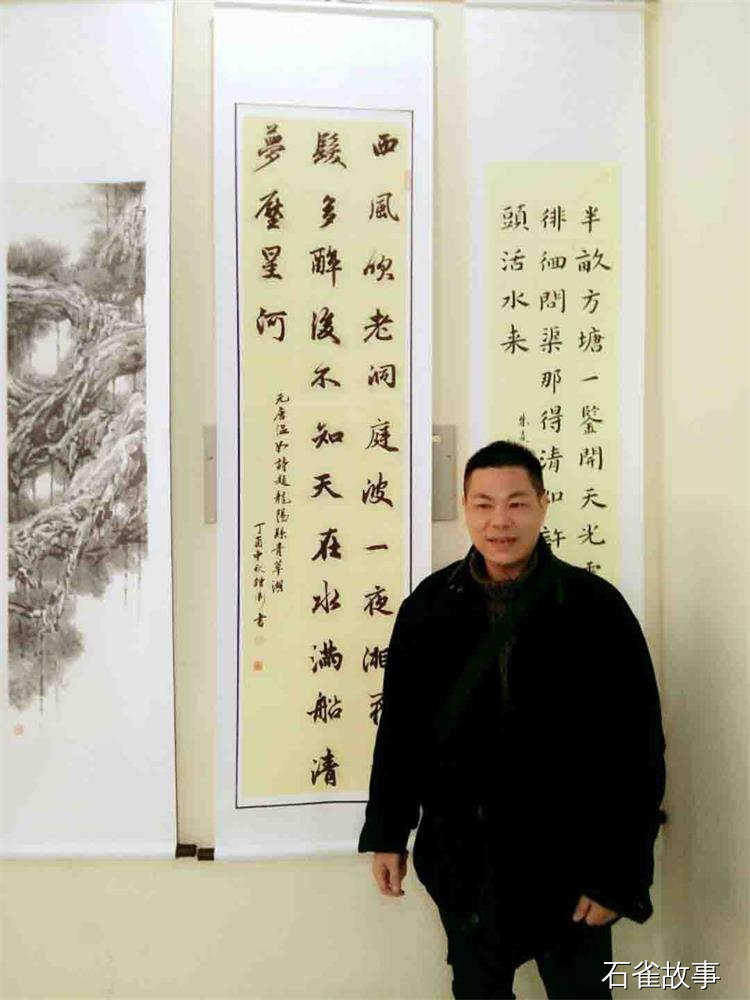 半畝方塘一鑒開天光
徘徊問渠那得清如許
頭活水来
朱
西風吹老洞庭波一夜湘
髮多醉後不知天在水滿船清
夢壓星河
元唐温如詩題龍陽縣青草湖
丁酉中秋 書
石雀故事